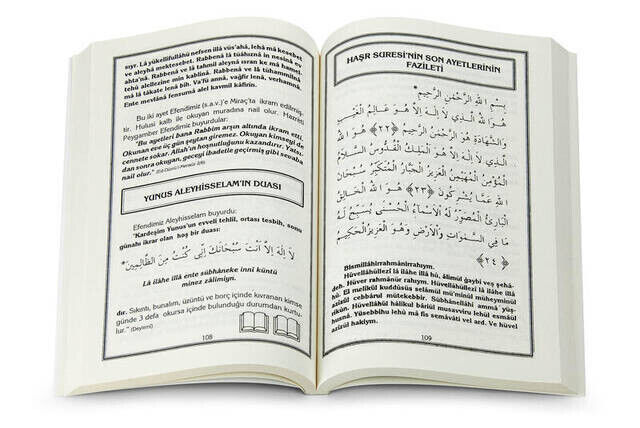 sıyr. Lâ yükellifullâhü nefsen illâ vüs'ahâ, lehâ mâ kesebet
ve aleyhâ mektesebet. Rabbenâ lâ tüâhıznâ in nesînâ ev
ahta'nâ. Rabbenâ ve lâ tahmil aleynâ ısran ke mâ hamel-
tehû alellezîne min kablinâ. Rabbenâ ve lâ tühammilnâ
mâ lâ tâkate lenâ bih. Va'fü annâ, vağfir lenâ, verhamnâ.
Ente mevlânâ fensurnâ alel kavmil kâfirîn.
Bu iki ayet Efendimiz (s.a.v.)'e Miraç'ta ikram edilmiş-
tir. Hulusi kalb ile okuyan muradına nail olur. Hazreti
Peygamber Efendimiz buyurdular:
"Bu ayetleri bana Rabbim arşın altında ikram etti.
Okunan eve üç gün şeytan giremez. Okuyan kimseyi de
cennete sokar. Allah'ın hoşnutluğunu kazandırır. Yatsı-
dan sonra okuyan, geceyi ibadetle geçirmiş gibi sevaba
nail olur."
YUNUS ALEYHİSSELAM'IN DUASI
Efendimiz Aleyhisselam buyurdu:
"Kardeşim Yunus'un evveli tehlil, ortası tesbih, sonu
günahı ikrar olan hoş bir duası:
لَا إِلٰهَ إِلَّا أَنْتَ سُبْحَانَكَ إِنِّى كُنْتُ مِنَ الظَّالِمِينَ*
Lâ ilâhe illâ ente sübhâneke innî küntü
minez zâlimîyn.
dır. Sıkıntı, bunalım, üzüntü ve borç içinde kıvranan kimse
günde 3 defa okursa içinde bulunduğu durumdan kurtu-
lur." (Deylemi)
108
HAŞR SURESİ'NİN SON AYETLERİNİN
FAZİLETİ
بِسْمِ اللّٰهِ الرَّحْمٰنِ الرَّحِيمِ*
هُوَ اللّٰهُ الَّذِى لَا إِلٰهَ إِلَّا هُوَ عَالِمُ الْغَيْبِ
وَالشَّهَادَةِ هُوَ الرَّحْمٰنُ الرَّحِيمُ ﴿٢٢﴾ هُوَ
اللّٰهُ الَّذِى لَا إِلٰهَ إِلَّا هُوَ الْمَلِكُ الْقُدُّوسُ السَّلَامُ
الْمُؤْمِنُ الْمُهَيْمِنُ الْعَزِيزُ الْجَبَّارُ الْمُتَكَبِّرُ سُبْحَانَ
اللّٰهِ عَمَّا يُشْرِكُونَ ﴿٢٣﴾ هُوَ اللّٰهُ الْخَالِقُ
الْبَارِئُ الْمُصَوِّرُ لَهُ الْأَسْمَاءُ الْحُسْنٰى يُسَبِّحُ لَهُ
مَا فِى السَّمٰوَاتِ وَالْأَرْضِ وَهُوَ الْعَزِيزُ الْحَكِيمُ
﴿٢٤﴾
Bismillâhirrahmânirrahıym.
Hüvellâhüllezî lâ ilâhe illâ hû, âlimül ğaybi veş şehâ-
deh. Hüver rahmânür rahıym. Hüvellâhüllezî lâ ilâhe illâ
hû. El melikül kuddûsüs selâmül mü'minül müheyminül
azîzül cebbârul mütekebbir. Sübhânellâhi ammâ yüş-
rikûn. Hüvellâhül hâlikul bâriül musavviru lehul esmâül
husnâ. Yüsebbihu lehû mâ fis semâvâti vel ard. Ve hüvel
azîzül hakîym.
109